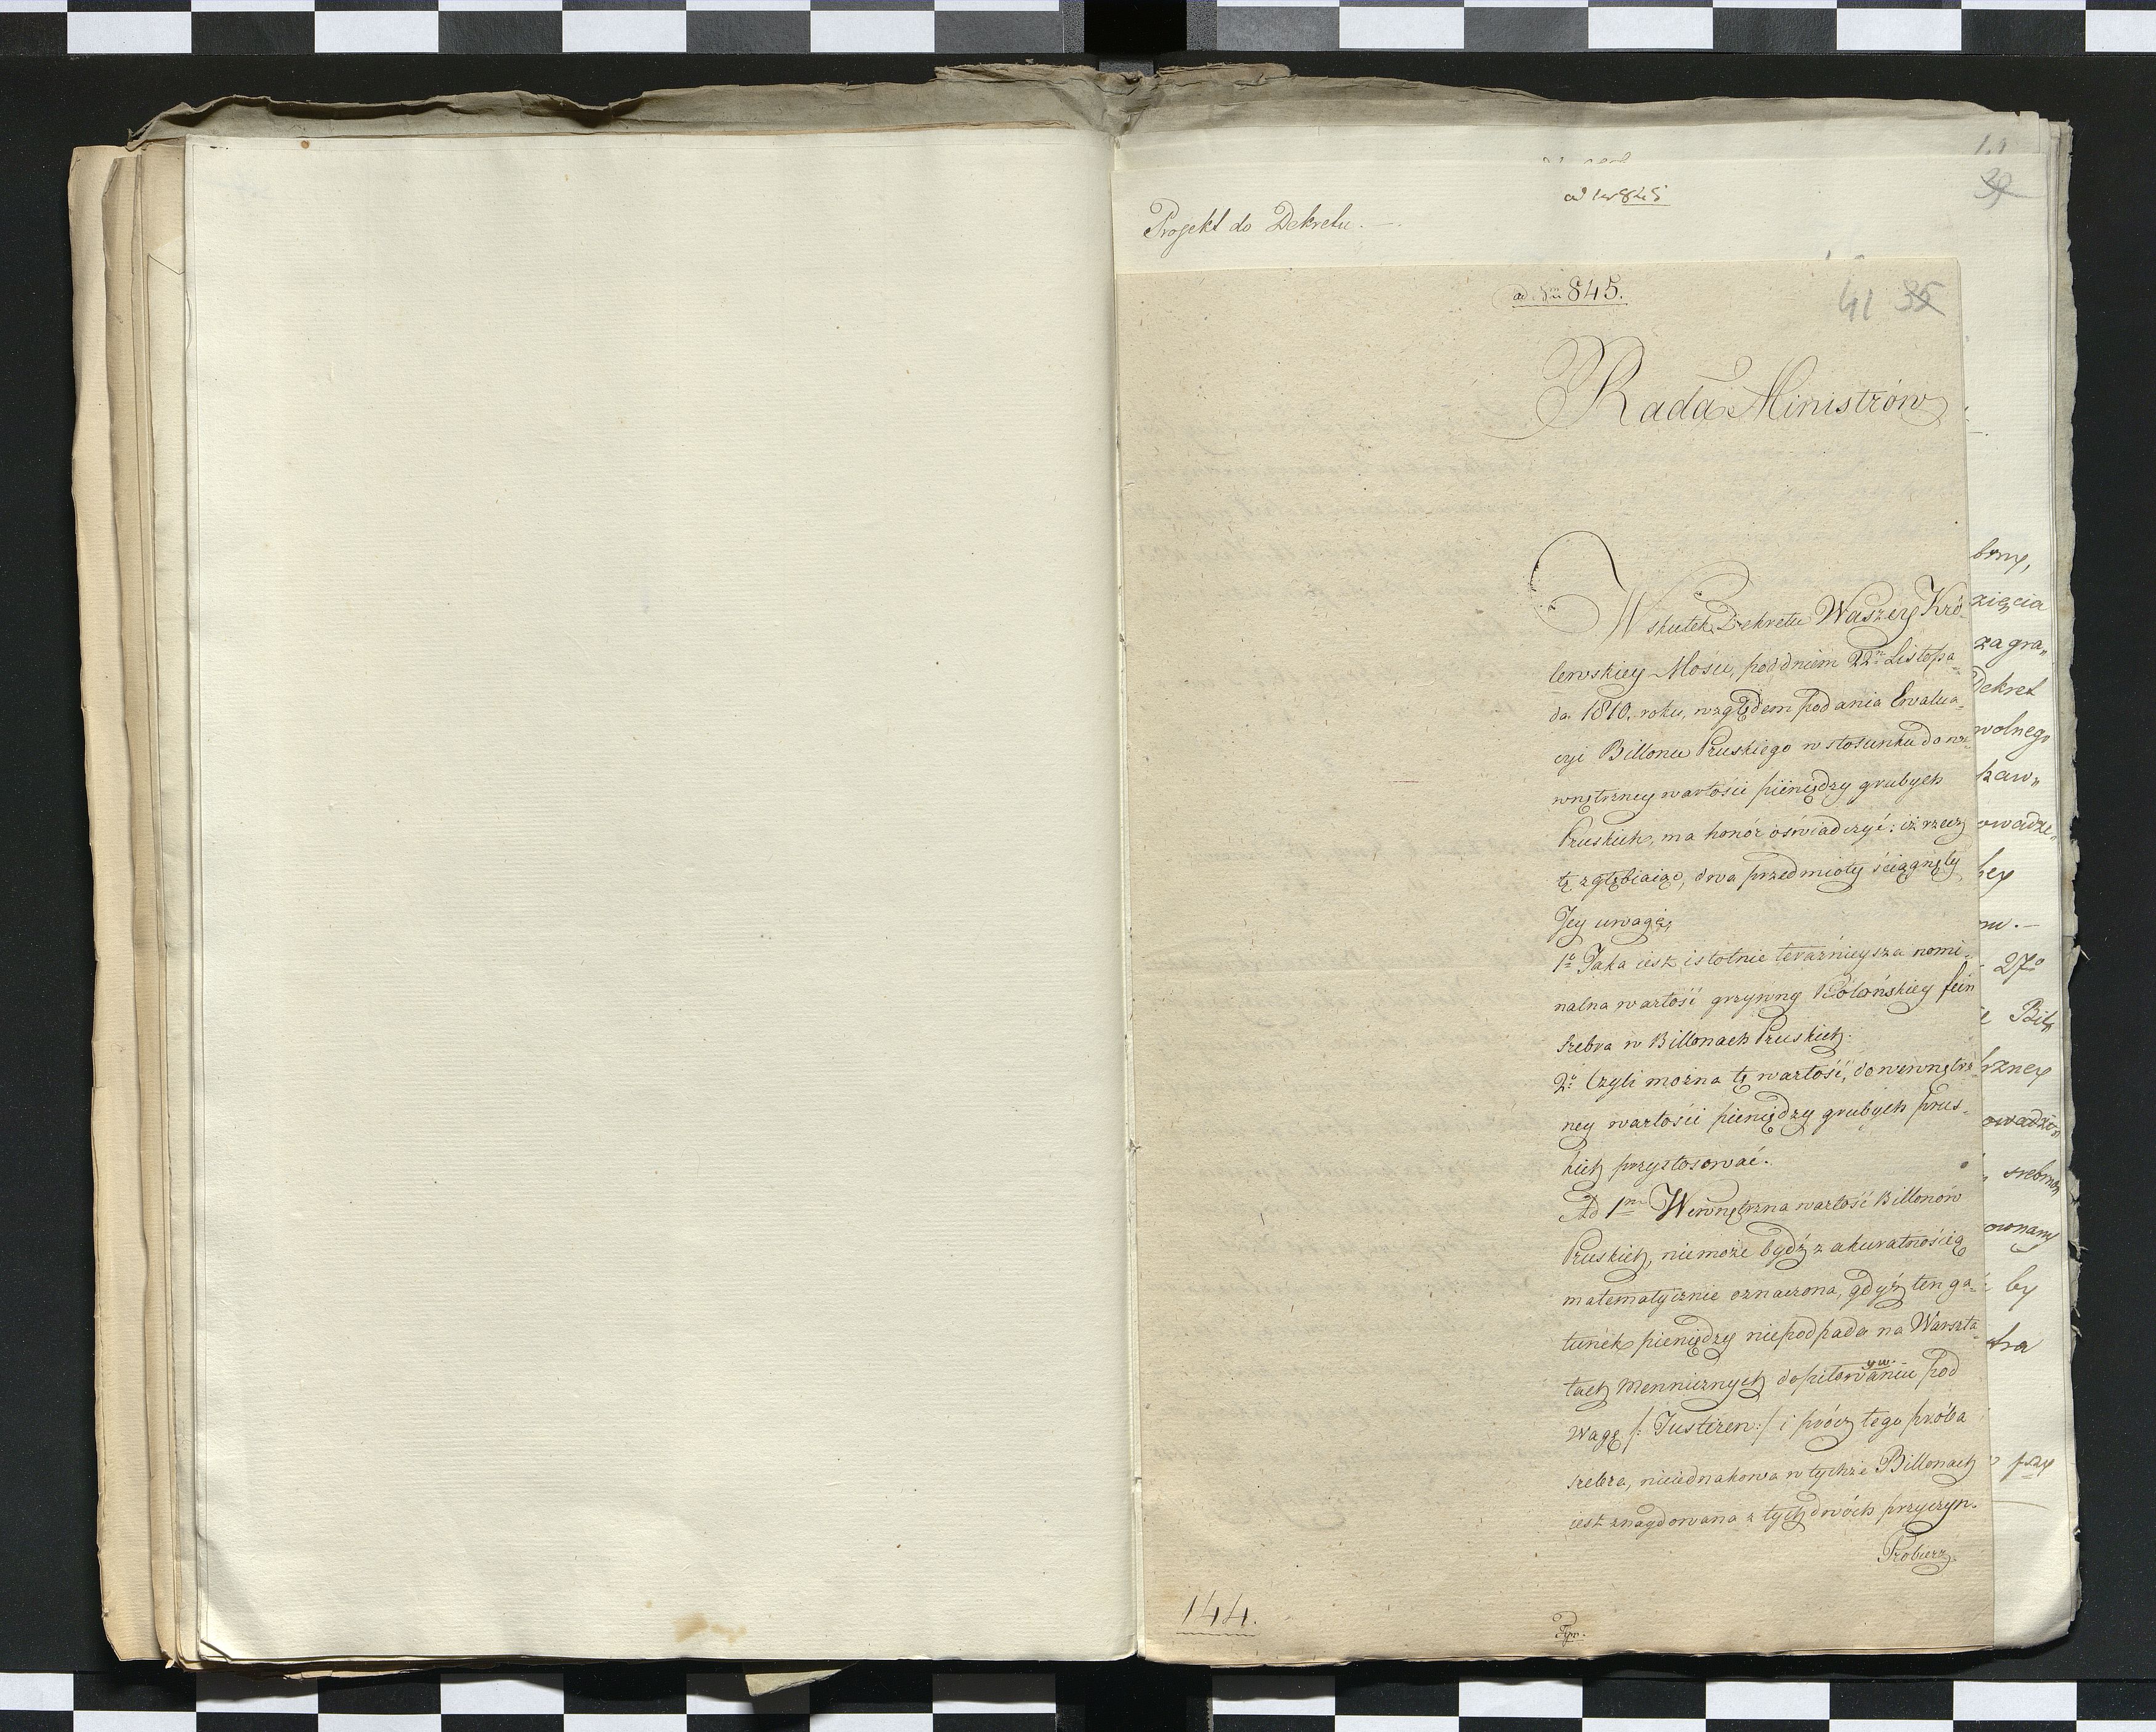 39
ad Nr 845
Projekt do Dekretu. —.
ad Num 845.
41 35
Rada Ministrów
W skutek Dekretu Waszey Kró-
lewskiey Mości, pod dniem 22n Listopa-
da 1810. roku, względem podania Ewalua-
cyi Billonu Pruskiego w stosunku do we-
wnętrzney wartości pieniędzy grubych
Pruskich, ma honór oświadczyć: iż rzecz
tę zgłębiaiąc, dwa przedmioty ściągnęły
Jey uwagę,
1o Jaka iest istotnie teraźnieysza nomi-
nalna wartość grzywny Kolońskiey fein
srebra w Billonach Pruskich.
2o Czyli można tę wartość, do wewnętrz-
ney wartości pieniędzy grubych prus-
kich przystosować.
Ad 1m Wewnętrzna wartość Billonów
Pruskich, niemoże bydź z akuratnością
matematycznie oznaczona, gdyż ten ga-
tunek pieniędzy niepodpada na Warszta-
tach Menniczych dopilowaniu pod
yw
Wagę /: Justiren :/ i prócz tego próba
srebra, nieiednakowa w tychże Billonach
iest znaydowana z tych dwóch przyczyn.
Probierz
144.
bny,
zięcia
zagra„
Dekret
wolnego
kaw„
owadze„
bey
mu. —
27o
Bil„
rzney
owadzo„
srebrn
ownany
by
tra
przy